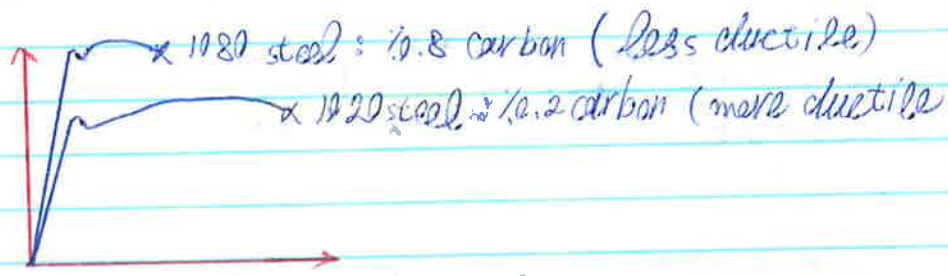 x 1080 steel : %0.8 carbon ( less ductile)
x 1020 steel : %0.2 carbon ( more ductile